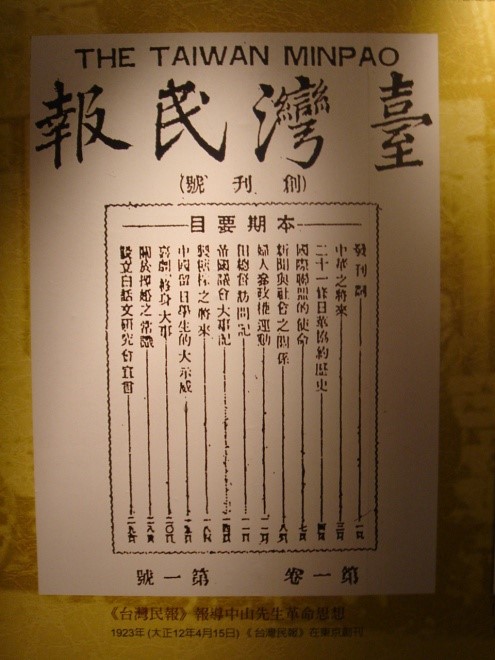 THE TAIWAN MINPAO
臺灣民報
(創刊號)
本期要目
發刊詞 一頁
中華之將來 三頁
二十一條日華協約歷史 四頁
國際聯盟的使命 七頁
新聞與社會之關係 八頁
婦人參政權運動 一二頁
田總督訪問記
帝國議會大事記 一四頁
製糖株之將來 一八頁
中國留日學生的大示威 一九頁
喜劇 終身大事 二〇頁
關於婚之常識 二八頁
設立白話文研究會宣言 二九頁
第一卷 第一號
《台灣民報》報導中山先生革命思想
1923年 (大正12年4月15日)《台灣民報》在東京創刊